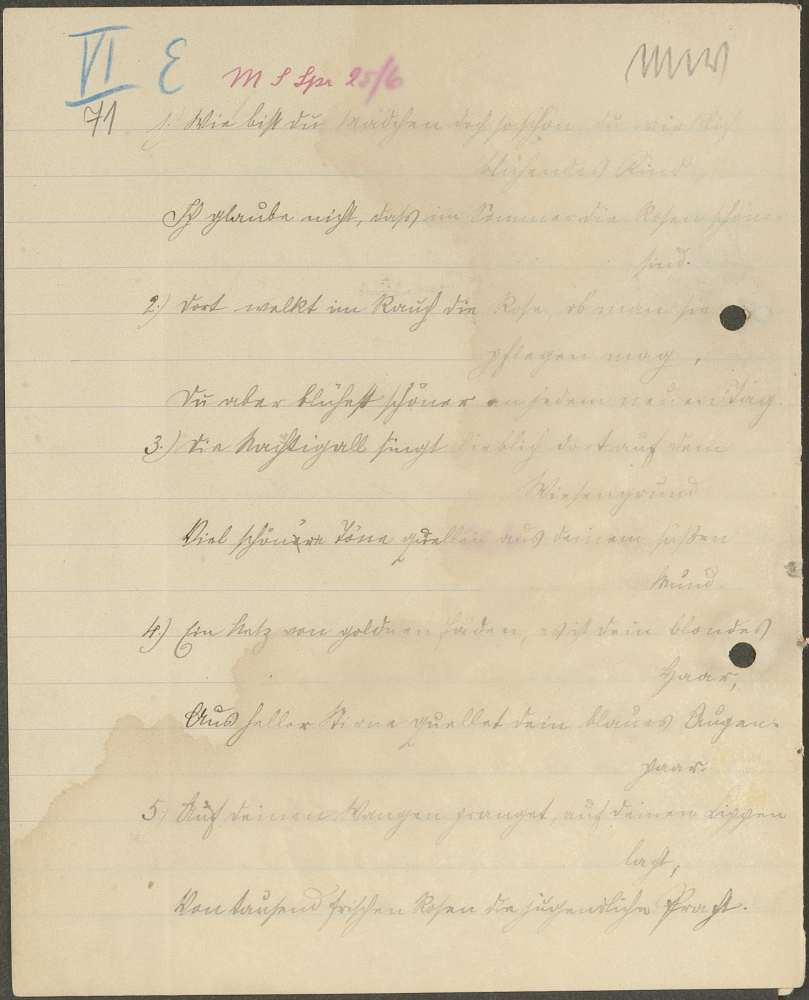 VI E
M S Spr 25/6
71
1. Wie bist du Mädchen doch so schön, du
blühendes Kind
Ich glaube nicht, dass im Sommer die Rosen schöner
sind.
2.) Dort welkt im Rauch die Rose, ob man sie
pflegen mag,
Du aber blühest schöner an jedem neuen Tag.
3.) Die Nachtigall singt lieblich dort auf dem
Wiesengrund
Viel schönere Töne quellen aus deinem süßen
Mund.
4.) Ein Netz von goldnen Fäden, ist dein blondes
Haar,
Aus heller Stirne quellet dein blaues Augen-
paar.
5. Auf deinen Wangen pranget, auf deinen Lippen
lacht,
Von tausend frischen Rosen die jugendliche Pracht.